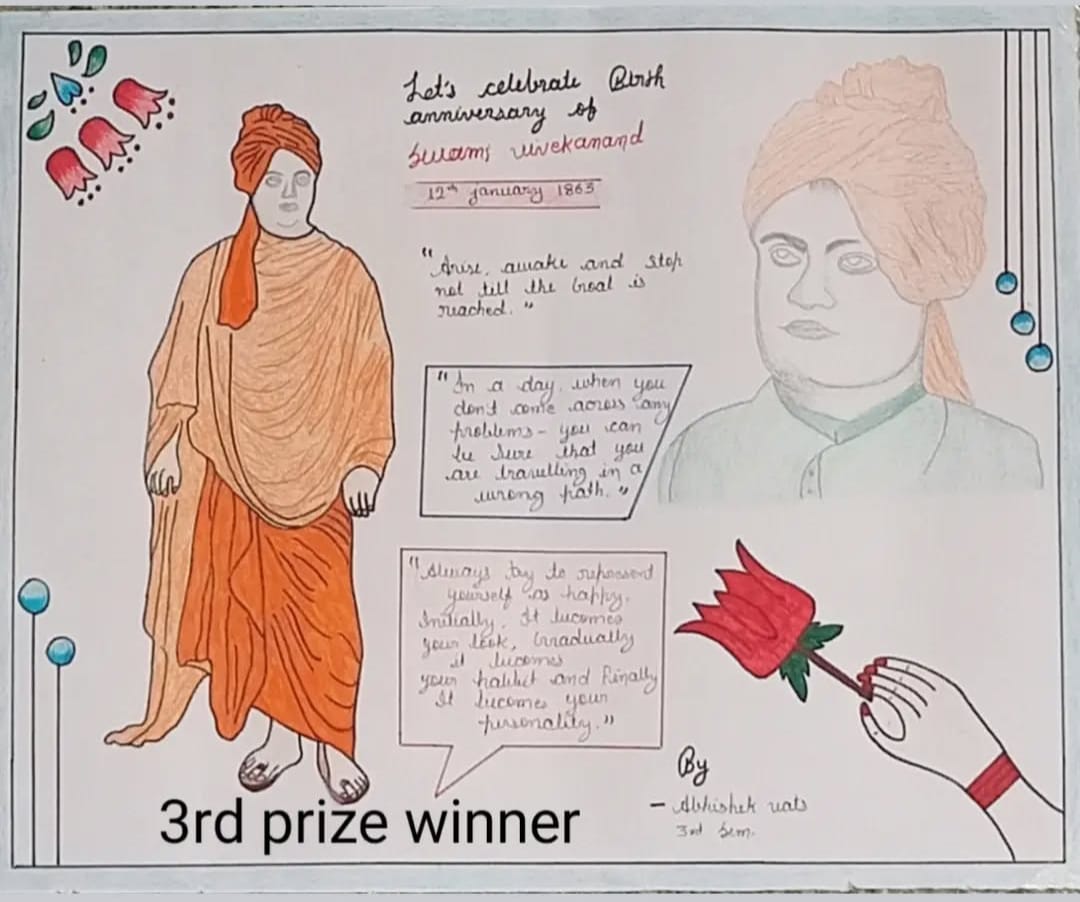 Let's celebrate Birth
anniversary of
Swami vivekanand
12th january 1863
"Arise, awake and stop
not till the Goal is
reached."
"In a day, when you
don't come across any
problems - you can
be sure that you
are travelling in a
wrong path."
"Always try to represent
yourself as happy.
Initially, It becomes
your look, Gradually
it becomes
your habbit and Finally
It becomes your
personality."
By
- Abhishek vats
3rd Sem.
3rd prize winner